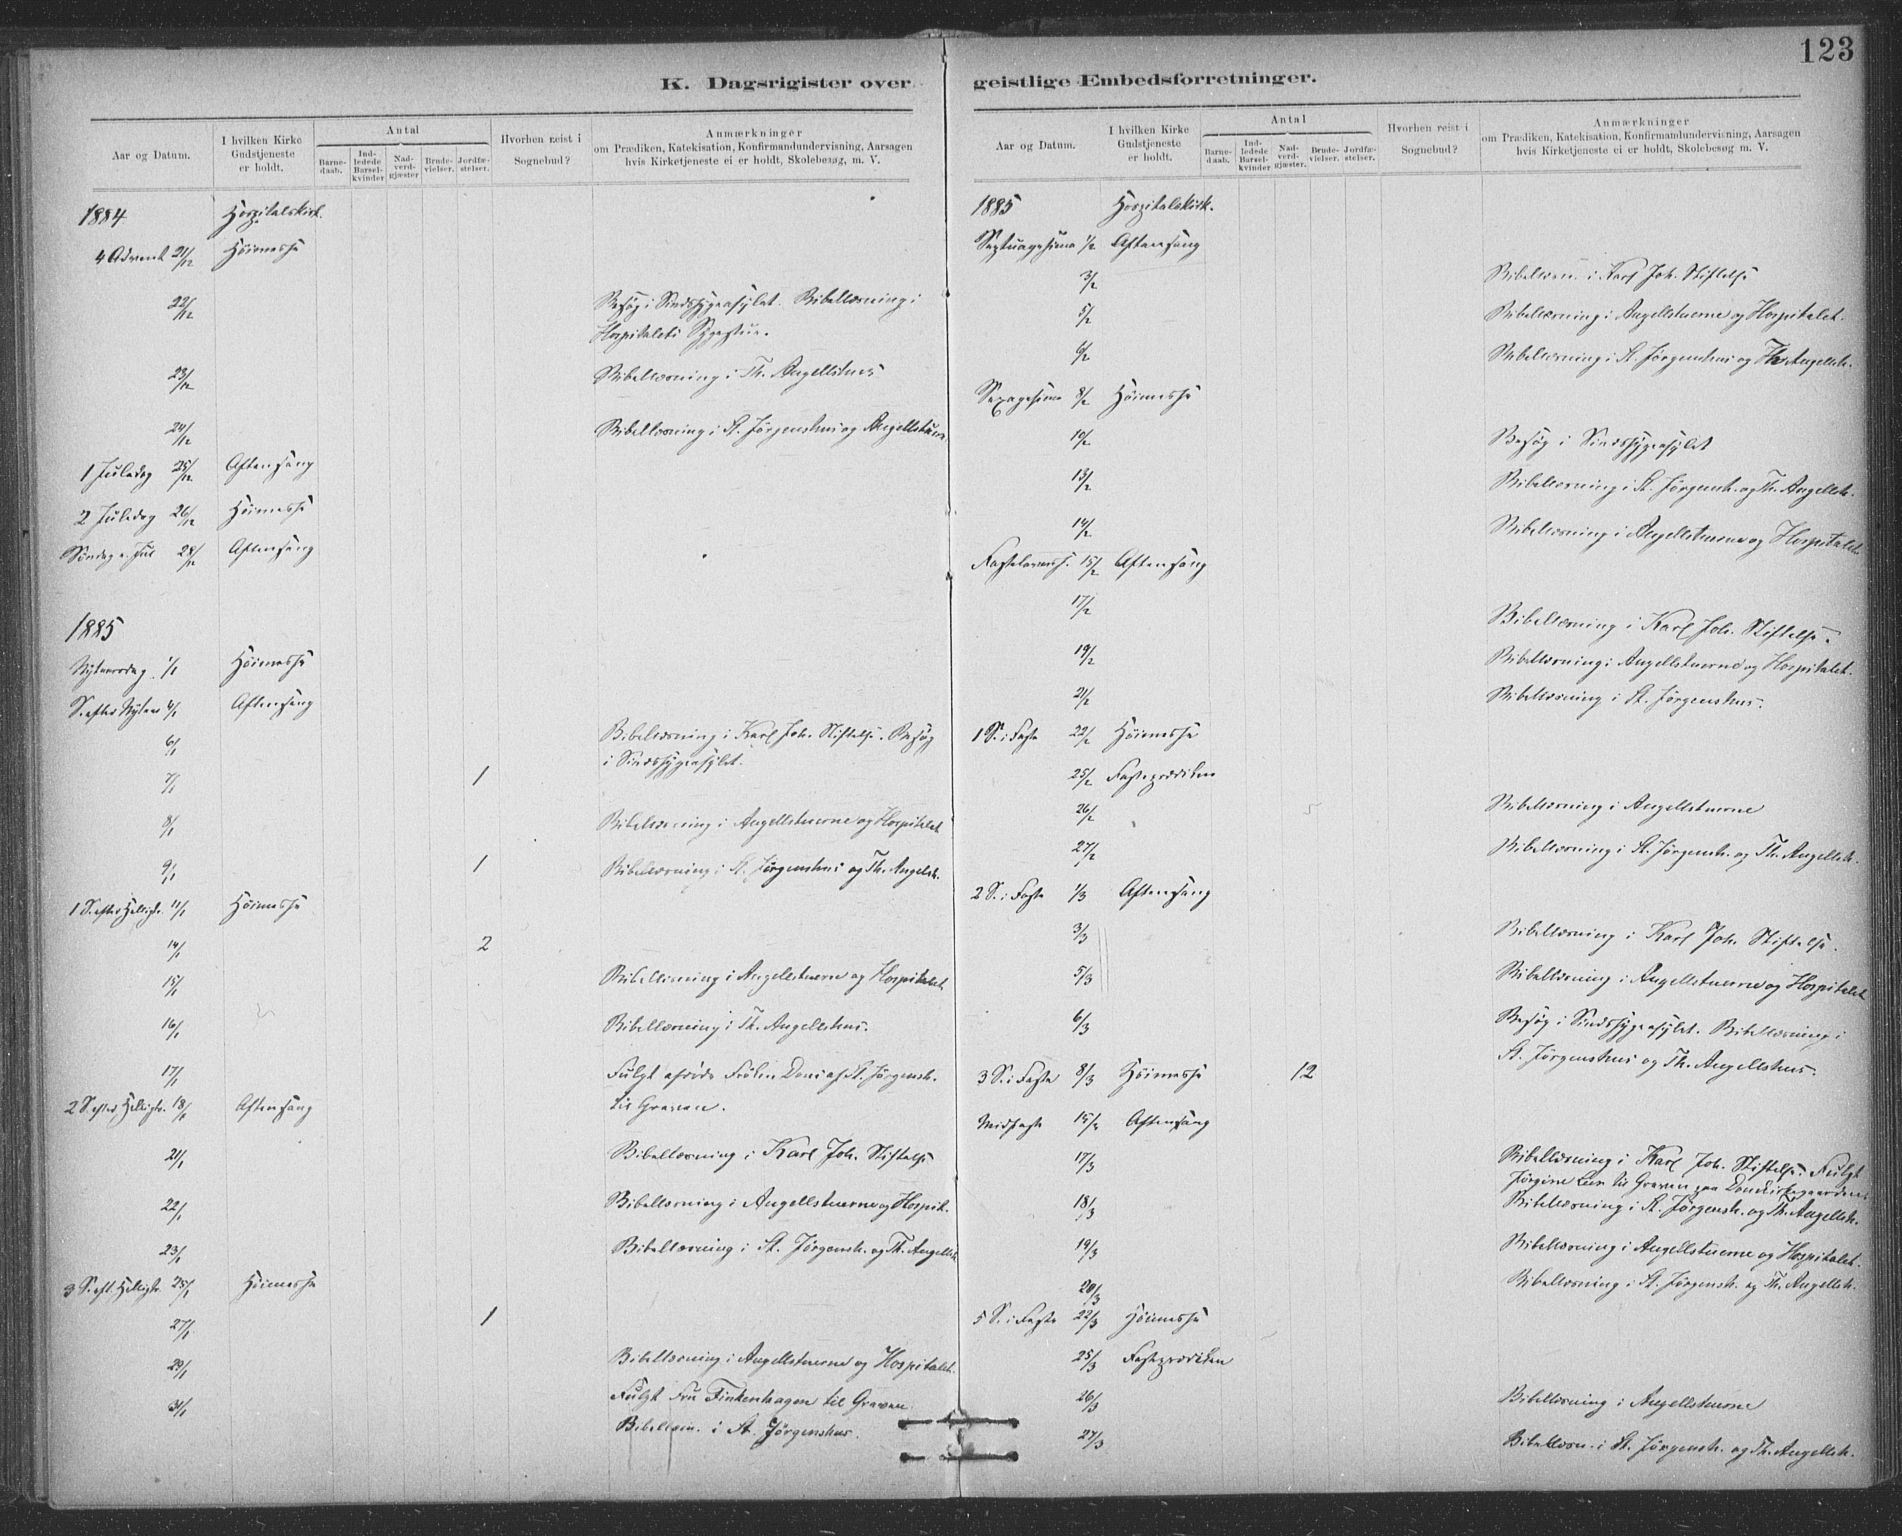 123
K. Dagsrigister over
Aar og Datum.
I hvilken Kirke Gudstjeneste er holdt.
Antal
Barnedaab.
Indledede Barselkvinder
Nadverdgjæster
Brudevielser.
Jordfæstelser.
Hvorhen reist i Sognebud?
Anmærkninger
om Prædiken, Katekisation, Konfirmandundervisning, Aarsagen
hvis Kirketjeneste ei er holdt, Skolebesøg, m. V.
1884 Hospitalskirk.
4 Advent 21/12 Höimesse
22/12 Besøg i Sindssygeasylet. Bibellæsning i
Hospitalets Sygestue.
23/12 Bibellæsning i Th. Angellshus
24/12 Bibellæsning i St. Jørgenshus og Angellstuerne
1 Juledag 25/12 Aftensang
2 Juledag 26/12 Höimesse
Söndag e. Jul 28/12 Aftensang
1885
Nytaarsdag 1/1 Höimesse
S. efter Nytaar 4/1 Aftensang
6/1 Bibellæsning i Karl Joh. Stiftelse. Besøg
i Sindssygeasylet.
7/1 1
8/1 Bibellæsning i Angellstuerne og Hospitalet
9/1 1 Bibellæsning i St. Jørgenshus og Th. Angellsh.
1 S. efter Helligtr. 11/1 Höimesse
14/1 2
15/1 Bibellæsning i Angellstuerne og Hospitalet
16/1 Bibellæsning i Th. Angellshus.
17/1 Fulgt afdøde Frøken Dons af St. Jørgensh.
til Graven.
2 S. efter Helligtr. 18/1 Aftensang
21/1 Bibellæsning i Karl Joh. Stiftelse
22/1 Bibellæsning i Angellstuerne og Hospit.
23/1 Bibellæsning i St. Jørgensh. og Th. Angellsh.
3 S. eft. Helligtr. 25/1 Höimesse
27/1 1
29/1 Bibellæsning i Angellstuerne og Hospitalet.
31/1 Fulgt Fru Finkenhagen til Graven.
Bibellæsn. i St. Jørgenshus.
geistlige Embedsforretninger.
Aar og Datum.
I hvilken Kirke Gudstjeneste er holdt.
Antal
Barnedaab.
Indledede Barselkvinder
Nadverdgjæster.
Brudevielser.
Jordfæstelser.
Hvorhen reist i Sognebud?
Anmærkninger
om Prædiken, Katekisation, Konfirmandundervisning, Aarsagen
hvis Kirketjeneste ei er holdt, Skolebesøg, m. V.
1885 Hospitalskirk.
Septuagesima 1/2 Aftensang
3/2 Bibellæsn. i Karl Joh. Stiftelse
5/2 Bibellæsning i Angellstuerne og Hospitalet.
6/2 Bibellæsning i St. Jørgenshus og Th. Angellsh.
Sexagesima 8/2 Höimesse
10/2 Besøg i Sindssygeasylet
13/2 Bibellæsning i St. Jørgensh. og Th. Angellsh.
14/2 Bibellæsning i Angellstuerne og Hospitalet
Fastelavnss. 15/2 Aftensang
17/2 Bibellæsning i Karl Joh. Stiftelse.
19/2 Bibellæsning i Angellstuerne og Hospitalet.
21/2 Bibellæsning i St. Jørgenshus.
1 S. i Faste 22/2 Höimesse
25/2 Fasteprædiken
26/2 Bibellæsning i Angellstuerne
27/2 Bibellæsning i St. Jørgensh. og Th. Angellsh.
2 S. i Faste 1/3 Aftensang
3/3 Bibellæsning i Karl Joh. Stiftelse.
5/3 Bibellæsning i Angellstuerne og Hospitalet
6/3 Besøg i Sindssygeasylet. Bibellæsning i
St. Jørgenshus og Th. Angellshus.
3 S. i Faste 8/3 Höimesse 12
Midfaste 15/3 Aftensang
17/3 Bibellæsning i Karl Joh. Stiftelse. Fulgt
Jørgine til Graven paa Domkirkegaarden
18/3 Bibellæsning i St. Jørgensh. og Th. Angellsh.
19/3 Bibellæsning i Angellstuerne og Hospitalet.
20/3 Bibellæsning i St. Jørgensh. og Th. Angellsh.
5 S. i Faste 22/3 Höimesse
25/3 Fasteprædiken
26/3 Bibellæsning i Angellstuerne
27/3 Bibellæsn. i St. Jørgensh. og Th. Angellsh.